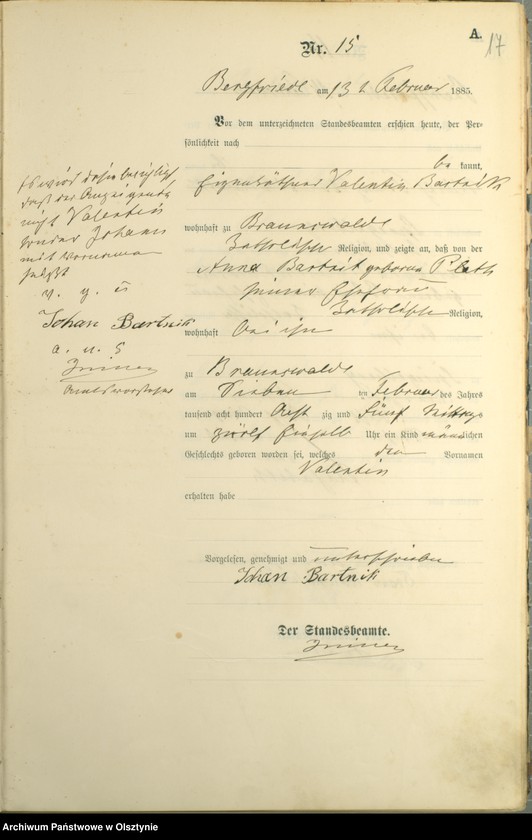 A.
17
Nr. 15
Bergfriede am 13 t Februar 1885.
Vor dem unterzeichneten Standesbeamten erschien heute, der Per-
sönlichkeit nach
be kannt,
Eigenkäthner Valentin Bartnik
wohnhaft zu Braunswalde
katholischer Religion, und zeigte an, daß von der
Anna Bartnik geborene
seiner Ehefrau
katholischer Religion,
wohnhaft bei ihm
zu Braunswalde
am Sieben ten Februar des Jahres
tausend acht hundert Acht zig und Fünf Mittags
um zwölf einhalb Uhr ein Kind männlichen
Geschlechts geboren worden sei, welches den Vornamen
Valentin
erhalten habe
Vorgelesen, genehmigt und unterschrieben
Johan Bartnik
Der Standesbeamte.
Es wird hier berichtigt
daß der Anzeigende
nicht Valentin
sondern Johann
mit Vornamen
heißt
v. g. u
Johan Bartnik
a. u. s
Amtsvorsteher
Archiwum Państwowe w Olsztynie